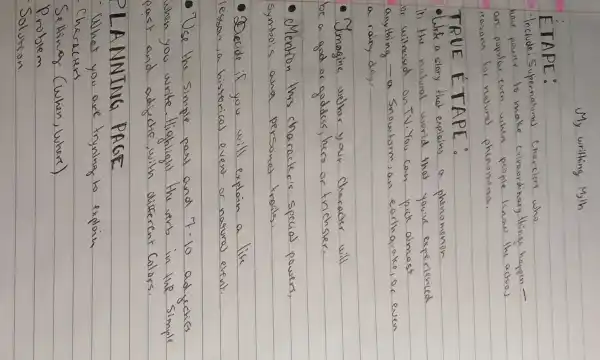 My writhing Myth
ÉTAPE:
- Include supernatural characters who
have powers to make extraordinary things happen —
are popular even when people know the actual
reasons for natural phenomena.
TRUE ÉTAPE:
• Write a story that explains a phenomenon
in the natural world that you've experienced
or witnessed on TV. You can pick almost
anything — a snowstorm, an earthquake, or even
a rainy day.
• Imagine wether your character will
be a god or goddess, hero or trickster.
• Mention this character's special powers,
symbols and personal traits.
• Decide if you will explain a life
lesson, a historical event or natural event.
• Use the simple past and 7-10 adjectives
when you write. Highlight the verbs in the simple
past and adjectives with different colors.
PLANNING PAGE
- What you are trying to explain
- Characters
Setting (when, where)
Problem
Solution